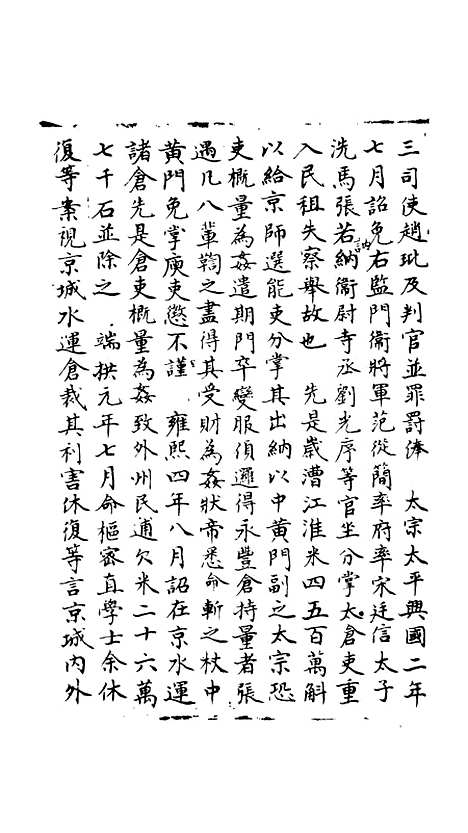 三司使趙玭及判官並罪罰俸　太宗太平興國二年
七月詔免右監門衛將軍范從簡率府率宋廷信太子
洗馬張若納訥衞尉寺丞劉光序等官坐分掌太倉吏重
入民租失察舉故也　先是歲漕江淮米四五百萬斛
以給京師選能吏分掌其出納以中黄門副之太宗恐
吏概量為姦遣期門卒變服偵邏得永豐倉持量者張
遇凡八輩鞫之盡得其受財為姦狀帝悉命斬之杖中
黄門免掌庾吏懲不謹　雍熙四年八月詔在京水運
諸倉先是倉吏概量為姦致外州民逋欠米二十六萬
七千石並除之　端拱元年七月命樞密直學士余休
復等案視京城水運倉裁其利害休復等言京城内外